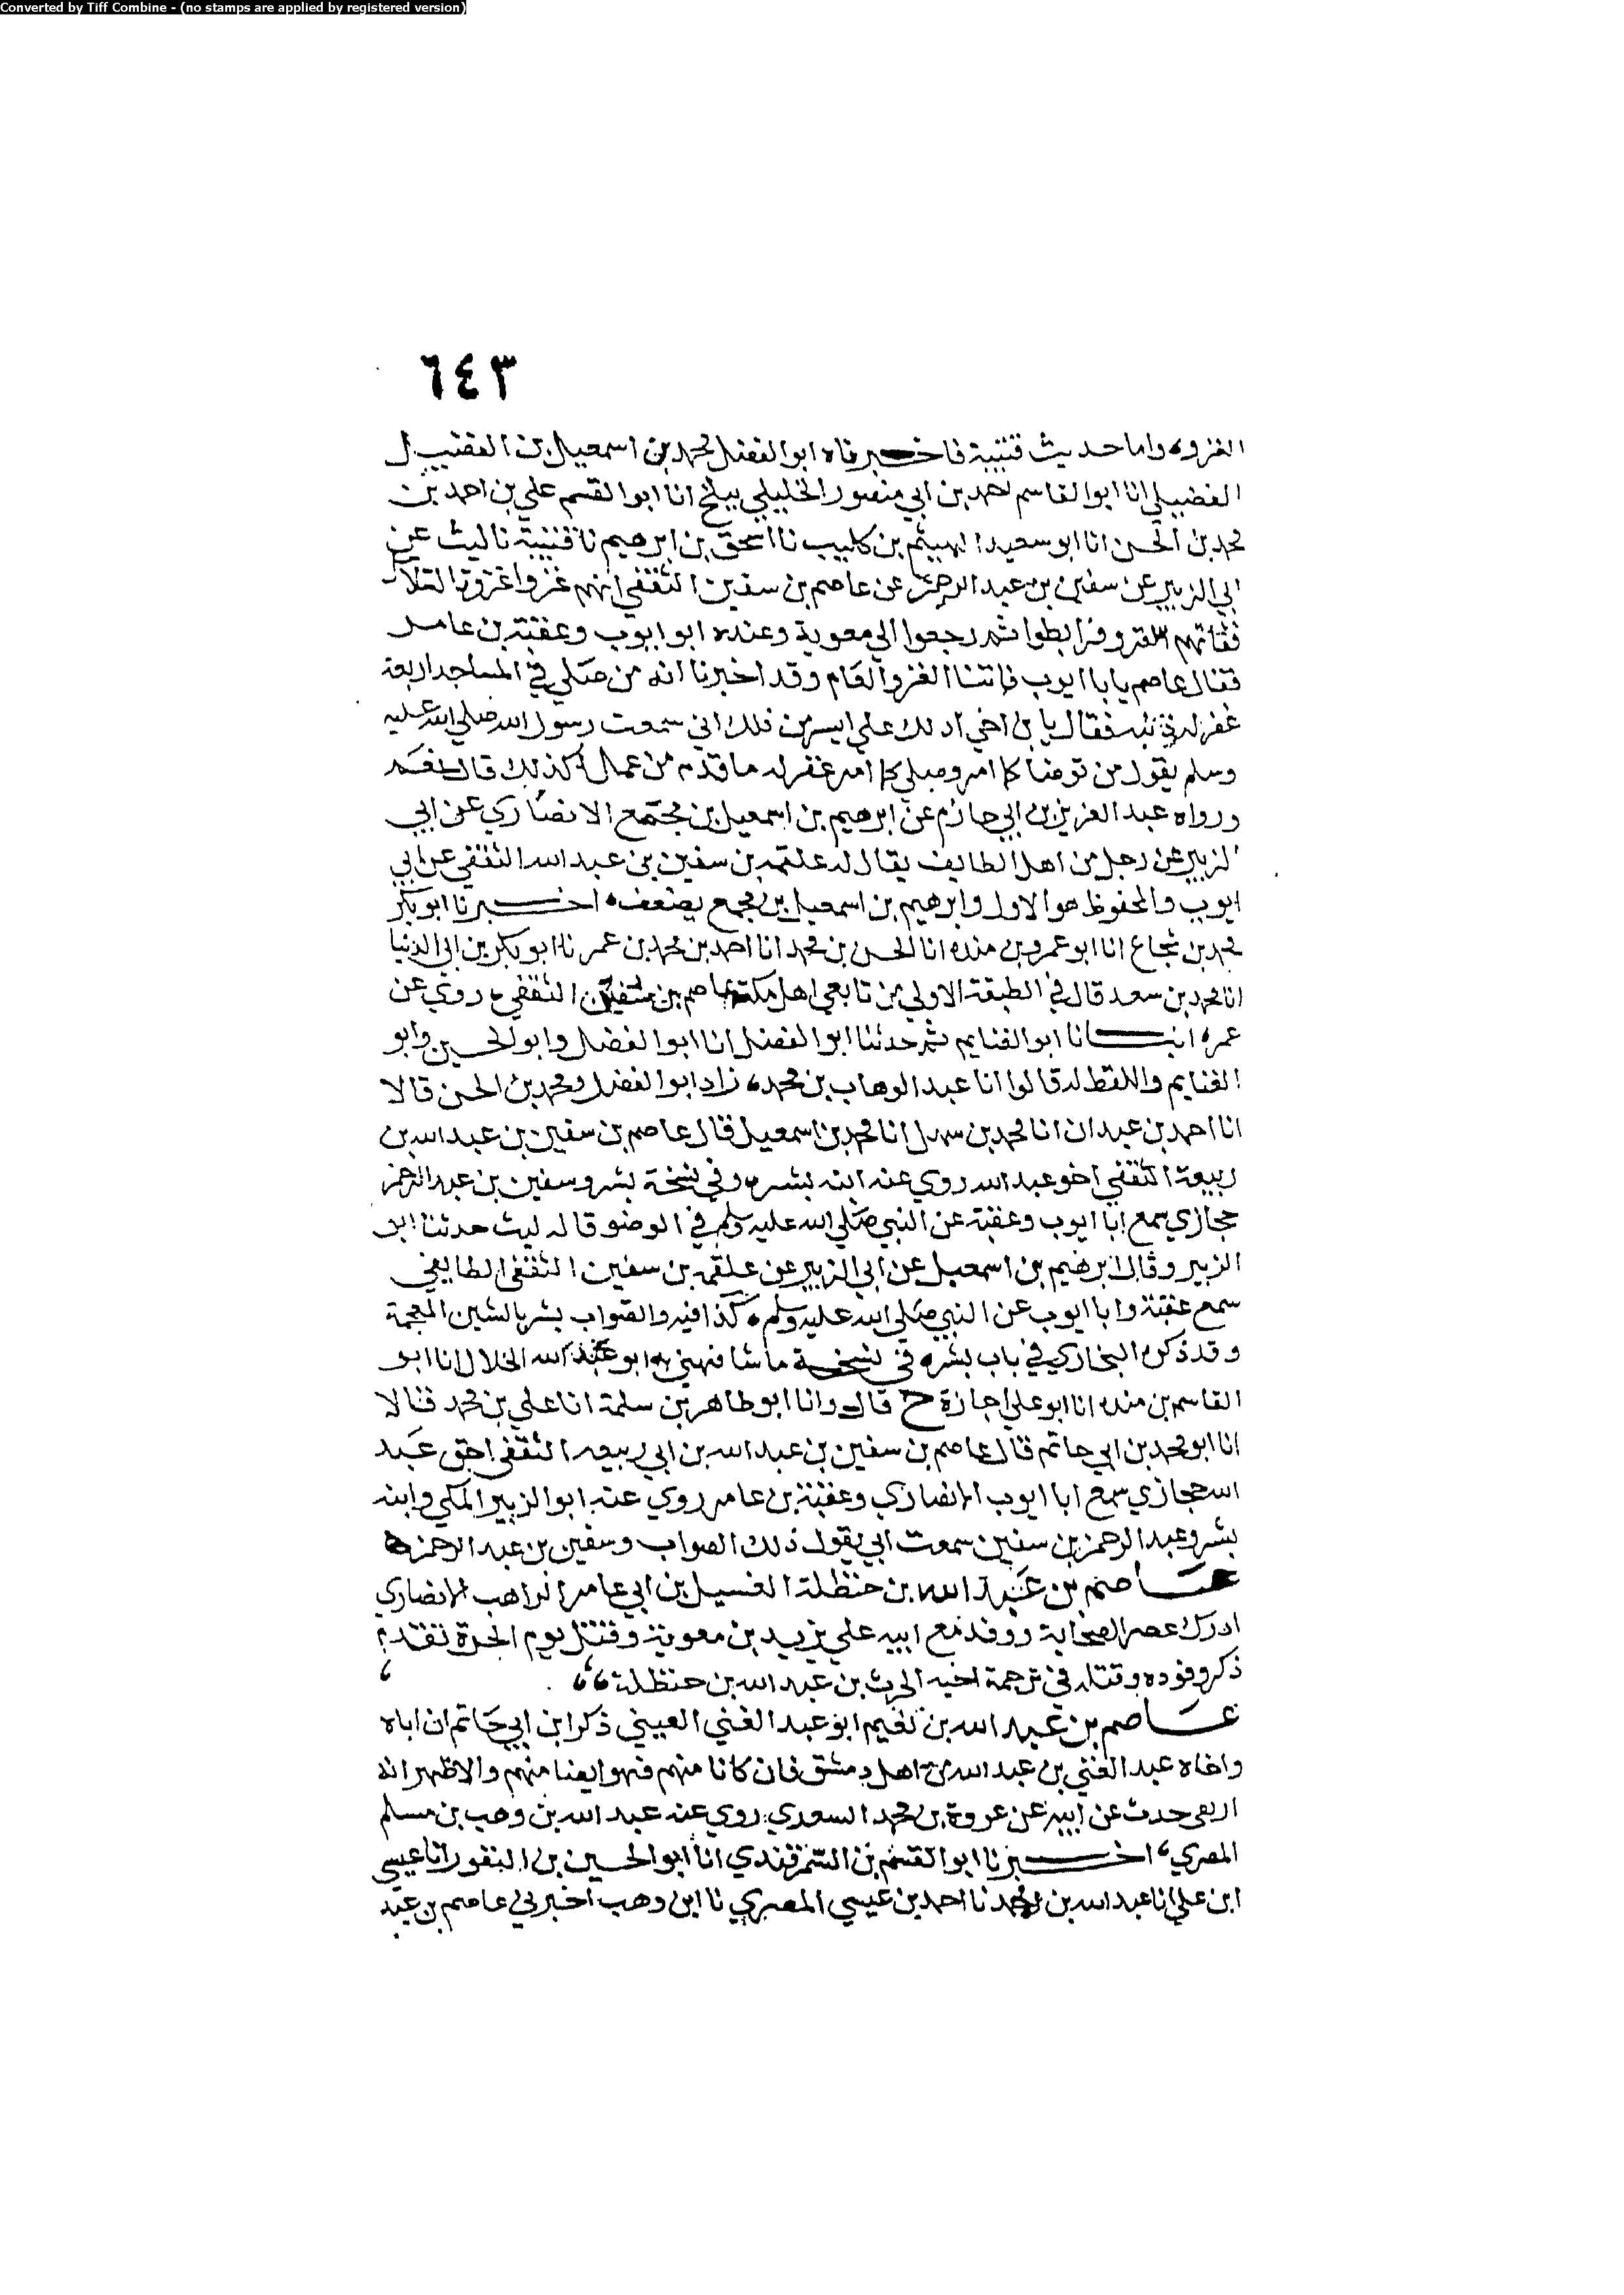 Converted by Tiff Combine - (no stamps are applied by registered version)
٦٤٣
الغزوه واما حديث قتيبة فاخبرناه ابو الفضل محمد بن اسمعيل بن الفضيل
الفضيلي انا ابو القاسم احمد بن ابي منصور الخليلي ببلخ انا ابو القسم علي بن احمد بن
محمد بن الحسن انا ابو سعيد الهيثم بن كليب نا اسحق بن ابرهيم نا قتيبة نا ليث عن
ابي الزبير عن سفين بن عبد الرحمن عن عاصم بن سفين الثقفي انهم غزوا غزوة السلاسل
ففاتهم الغزو فرابطوا ثم رجعوا الي معوية وعنده ابو ايوب وعقبة بن عامر
فقال عاصم يابا ايوب فاتنا الغزو العام وقد اخبرنا انه من صلي في المساجد اربعة
غفر له ذنبه فقال يا بن اخي ادلك علي ايسر من ذلك اني سمعت رسول الله صلي الله عليه
وسلم يقول من توضا كما امر وصلي كما امر غفر له ما قدم من عمل اكذلك قال نعم
ورواه عبد العزيز بن ابي حازم عن ابرهيم بن اسمعيل بن مجمع الانصاري عن ابي
الزبير عن رجل من اهل الطايف يقال له علقمه بن سفين بن عبد الله الثقفي عن ابي
ايوب والمحفوظ هو الاول وابرهيم بن اسمعيل بن مجمع يضعف اخبرنا ابو بكر
محمد بن شجاع انا ابو عمرو بن منده انا الحسن بن محمد انا احمد بن محمد بن عمر نا ابو بكر بن ابي الدنيا
انا محمد بن سعد قال في الطبقة الاولي من تابعي اهل مكة عاصم بن سفين الثقفي روي عن
عمر انبانا ابو الغنايم ثم حدثنا ابو الفضل انا ابو الفضل وابو الحسين وابو
الغنايم واللفظ له قالوا انا عبد الوهاب بن محمد زاد ابو الفضل ومحمد بن الحسن قالا
انا احمد بن عبدان انا محمد بن سهل انا محمد بن اسمعيل قال عاصم بن سفين بن عبد الله بن
ربيعة الثقفي اخو عبد الله روي عنه ابنه بشر وفي نسخة بشر وسفين بن عبد الرحمن
حجازي سمع ابا ايوب وعقبة عن النبي صلي الله عليه وسلم في الوضو قاله ليث حدثنا ابو
الزبير وقال ابرهيم بن اسمعيل عن ابي الزبير عن علقمه بن سفين الثقفي الطايفي
سمع عقبة وابا ايوب عن النبي صلي الله عليه وسلم كذا فيه والصواب بشر بالشين المعجمة
وقد ذكره البخاري في باب بشر في نسخة ما شافهني به ابو عبد الله الخلال انا ابو
القاسم بن منده انا ابو علي اجازة ح قال وانا ابو طاهر بن سلمة انا علي بن محمد قالا
انا ابو محمد بن ابي حاتم قال عاصم بن سفين بن عبد الله بن ابي ربيعه الثقفي اخو عبد
الله حجازي سمع ابا ايوب الانصاري وعقبة بن عامر روي عنه ابو الزبير المكي وابنه
بشر وعبد الرحمن بن سفين سمعت ابي يقول ذلك الصواب وسفين بن عبد الرحمن
عاصم بن عبد الله بن حنظلة الغسيل بن ابي عامر الراهب الانصاري
ادرك عصر الصحابة ووفد مع ابيه علي يزيد بن معوية وقتل يوم الحرة تقدم
ذكر وفوده وقتله في ترجمة اخيه الحرث بن عبد الله بن حنظلة
عاصم بن عبد الله بن نعيم ابو عبد الغني القيني ذكر ابن ابي حاتم ان اباه
واخاه عبد الغني بن عبد الله من اهل دمشق فان كانا منهم فهو ايضا منهم والاظهر انه
اردني حدث عن ابيه عن عروة بن محمد السعدي روي عنه عبد الله بن وهب بن مسلم
المصري اخبرنا ابو القسم بن السمرقندي انا ابو الحسين بن النقور انا عيسي
ابن علي انا عبد الله بن محمد نا احمد بن عيسي المصري نا ابن وهب اخبرني عاصم بن عبد